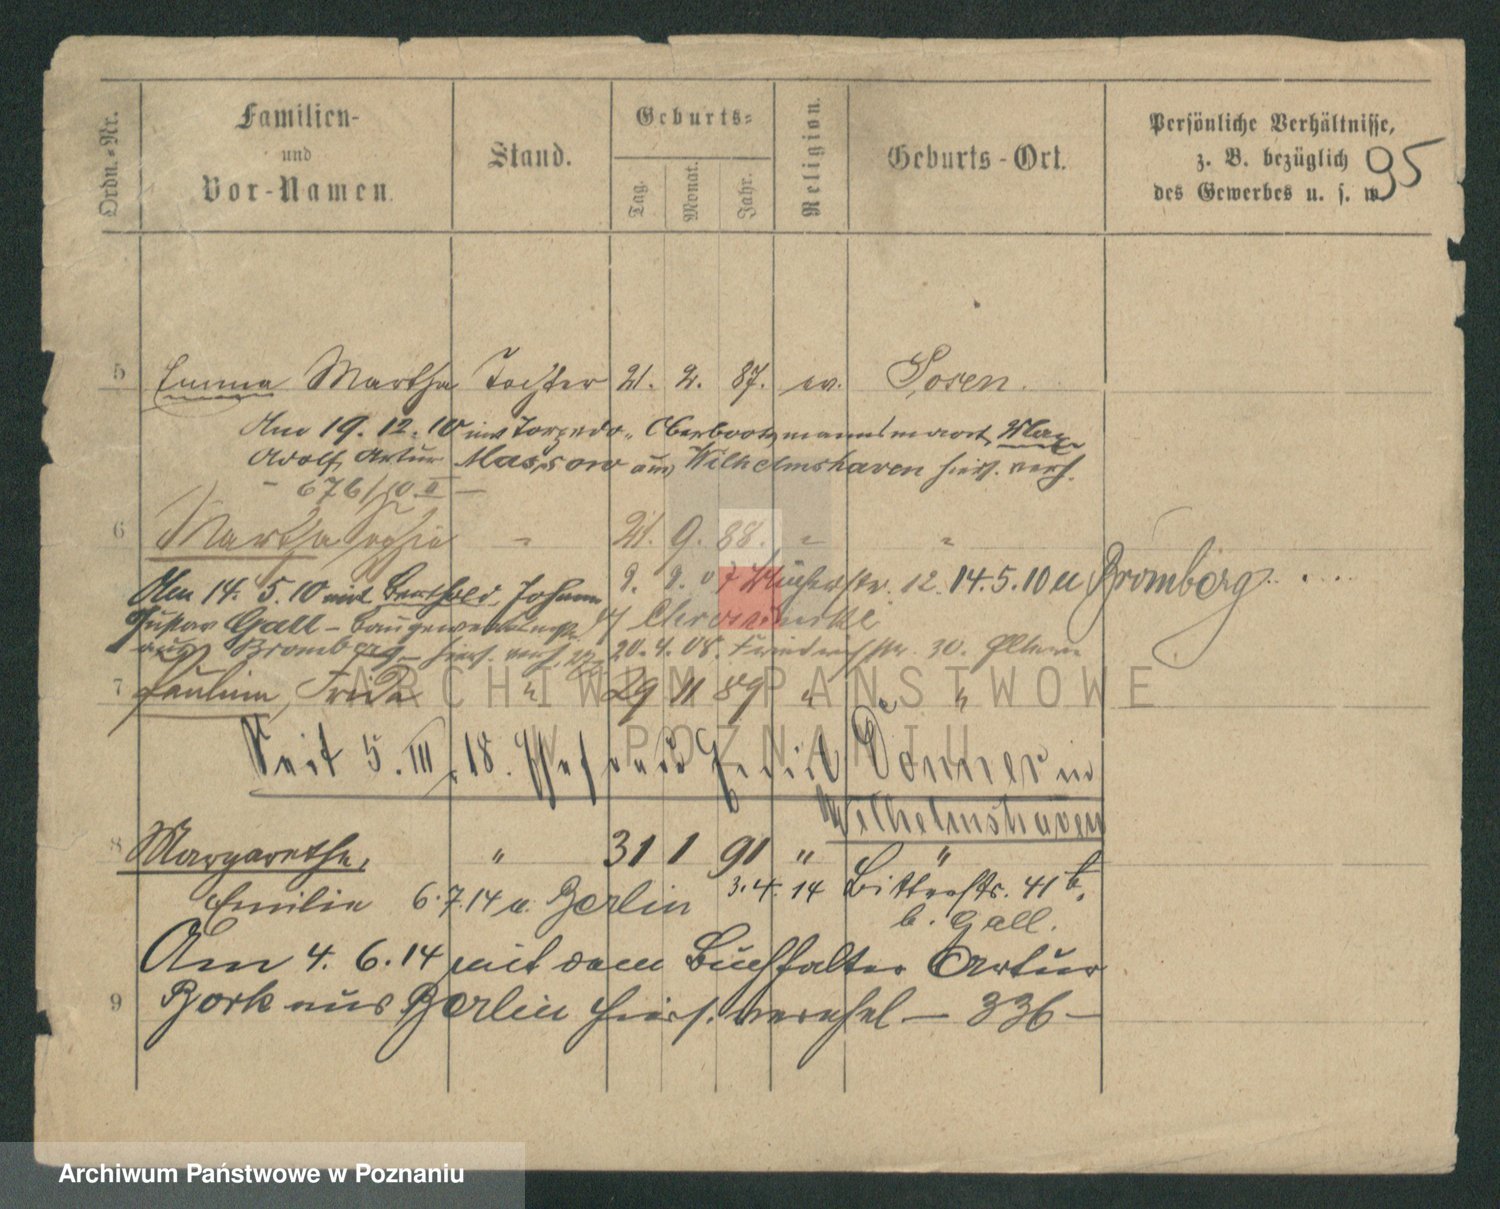 Ordn.-Nr.
Familien-
und
Vor-Namen.
Stand.
Geburts-
Tag.
Monat.
Jahr.
Religion.
Geburts-Ort.
Persönliche Verhältnisse,
z. B. bezüglich
des Gewerbes u. s. w.
95
5 Emma Martha Tochter 21. 2. 87. ev. Posen.
Am 19. 12. 10 mit Torpedo-Oberbootsmannsmaat Max
Adolf Artur Massow aus Wilhelmshaven hiers. verh.
- 676/10 II -
6 Martha Sophie " 21. 9. 88. " "
9. 9. 07 12. 14.5.10 n Bromberg
Am 14. 5. 10 mit Berthold Johann
Gustav Gall -
aus Bromberg hiers. verh. 20. 4. 08. 30. Eltern
7 Pauline, Frida " 29 11 89 " "
Seit 5. III. 18. Donner in
Wilhelmshaven
8 Margarethe, " 31 1 91 " "
Emilie 6.7.14 n. Berlin 3. 4. 14 Bitterstr. 41 b.
b. Gall.
Am 4. 6. 14 mit dem Buchhalter Artur
9 Bork aus Berlin hiers. verehel - 336 -
ARCHIWUM PAŃSTWOWE
W POZNANIU
Archiwum Państwowe w Poznaniu